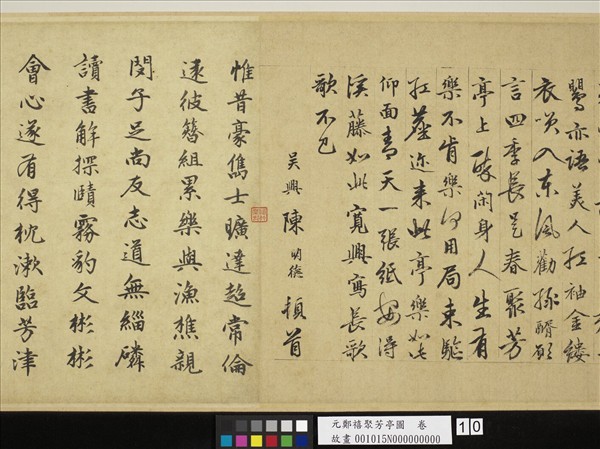 鸎亦語美人紅袖金縷
衣吹入東風勸綠醑願
言四季長是春聚芳
亭上醉閑身人生有
樂不肯樂何用局束
紅塵近來此亭樂如此
仰面青天一張紙安得
溪藤如此寬興寫長歌
歌不已
吳興陳明德頓首
惟昔豪雋士曠達超常倫
遠彼簪組累樂與漁樵親
閔予足尚友志道無緇磷
讀書解探賾霧豹文彬彬
會心遂有得枕漱臨芳津
元鄭禧聚芳亭圖 卷
故畫 001015N000000000
10